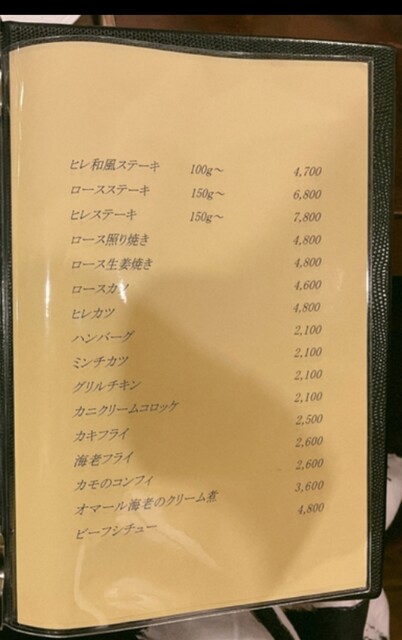 ヒレ和風ステーキ 100g～ 4,700
ロースステーキ 150g～ 6,800
ヒレステーキ 150g～ 7,800
ロース照り焼き 4,800
ロース生姜焼き 4,800
ロースカツ 4,600
ヒレカツ 4,800
ハンバーグ 2,100
ミンチカツ 2,100
グリルチキン 2,100
カニクリームコロッケ 2,100
カキフライ 2,500
海老フライ 2,600
カモのコンフィ 2,600
オマール海老のクリーム煮 3,600
ビーフシチュー 4,800